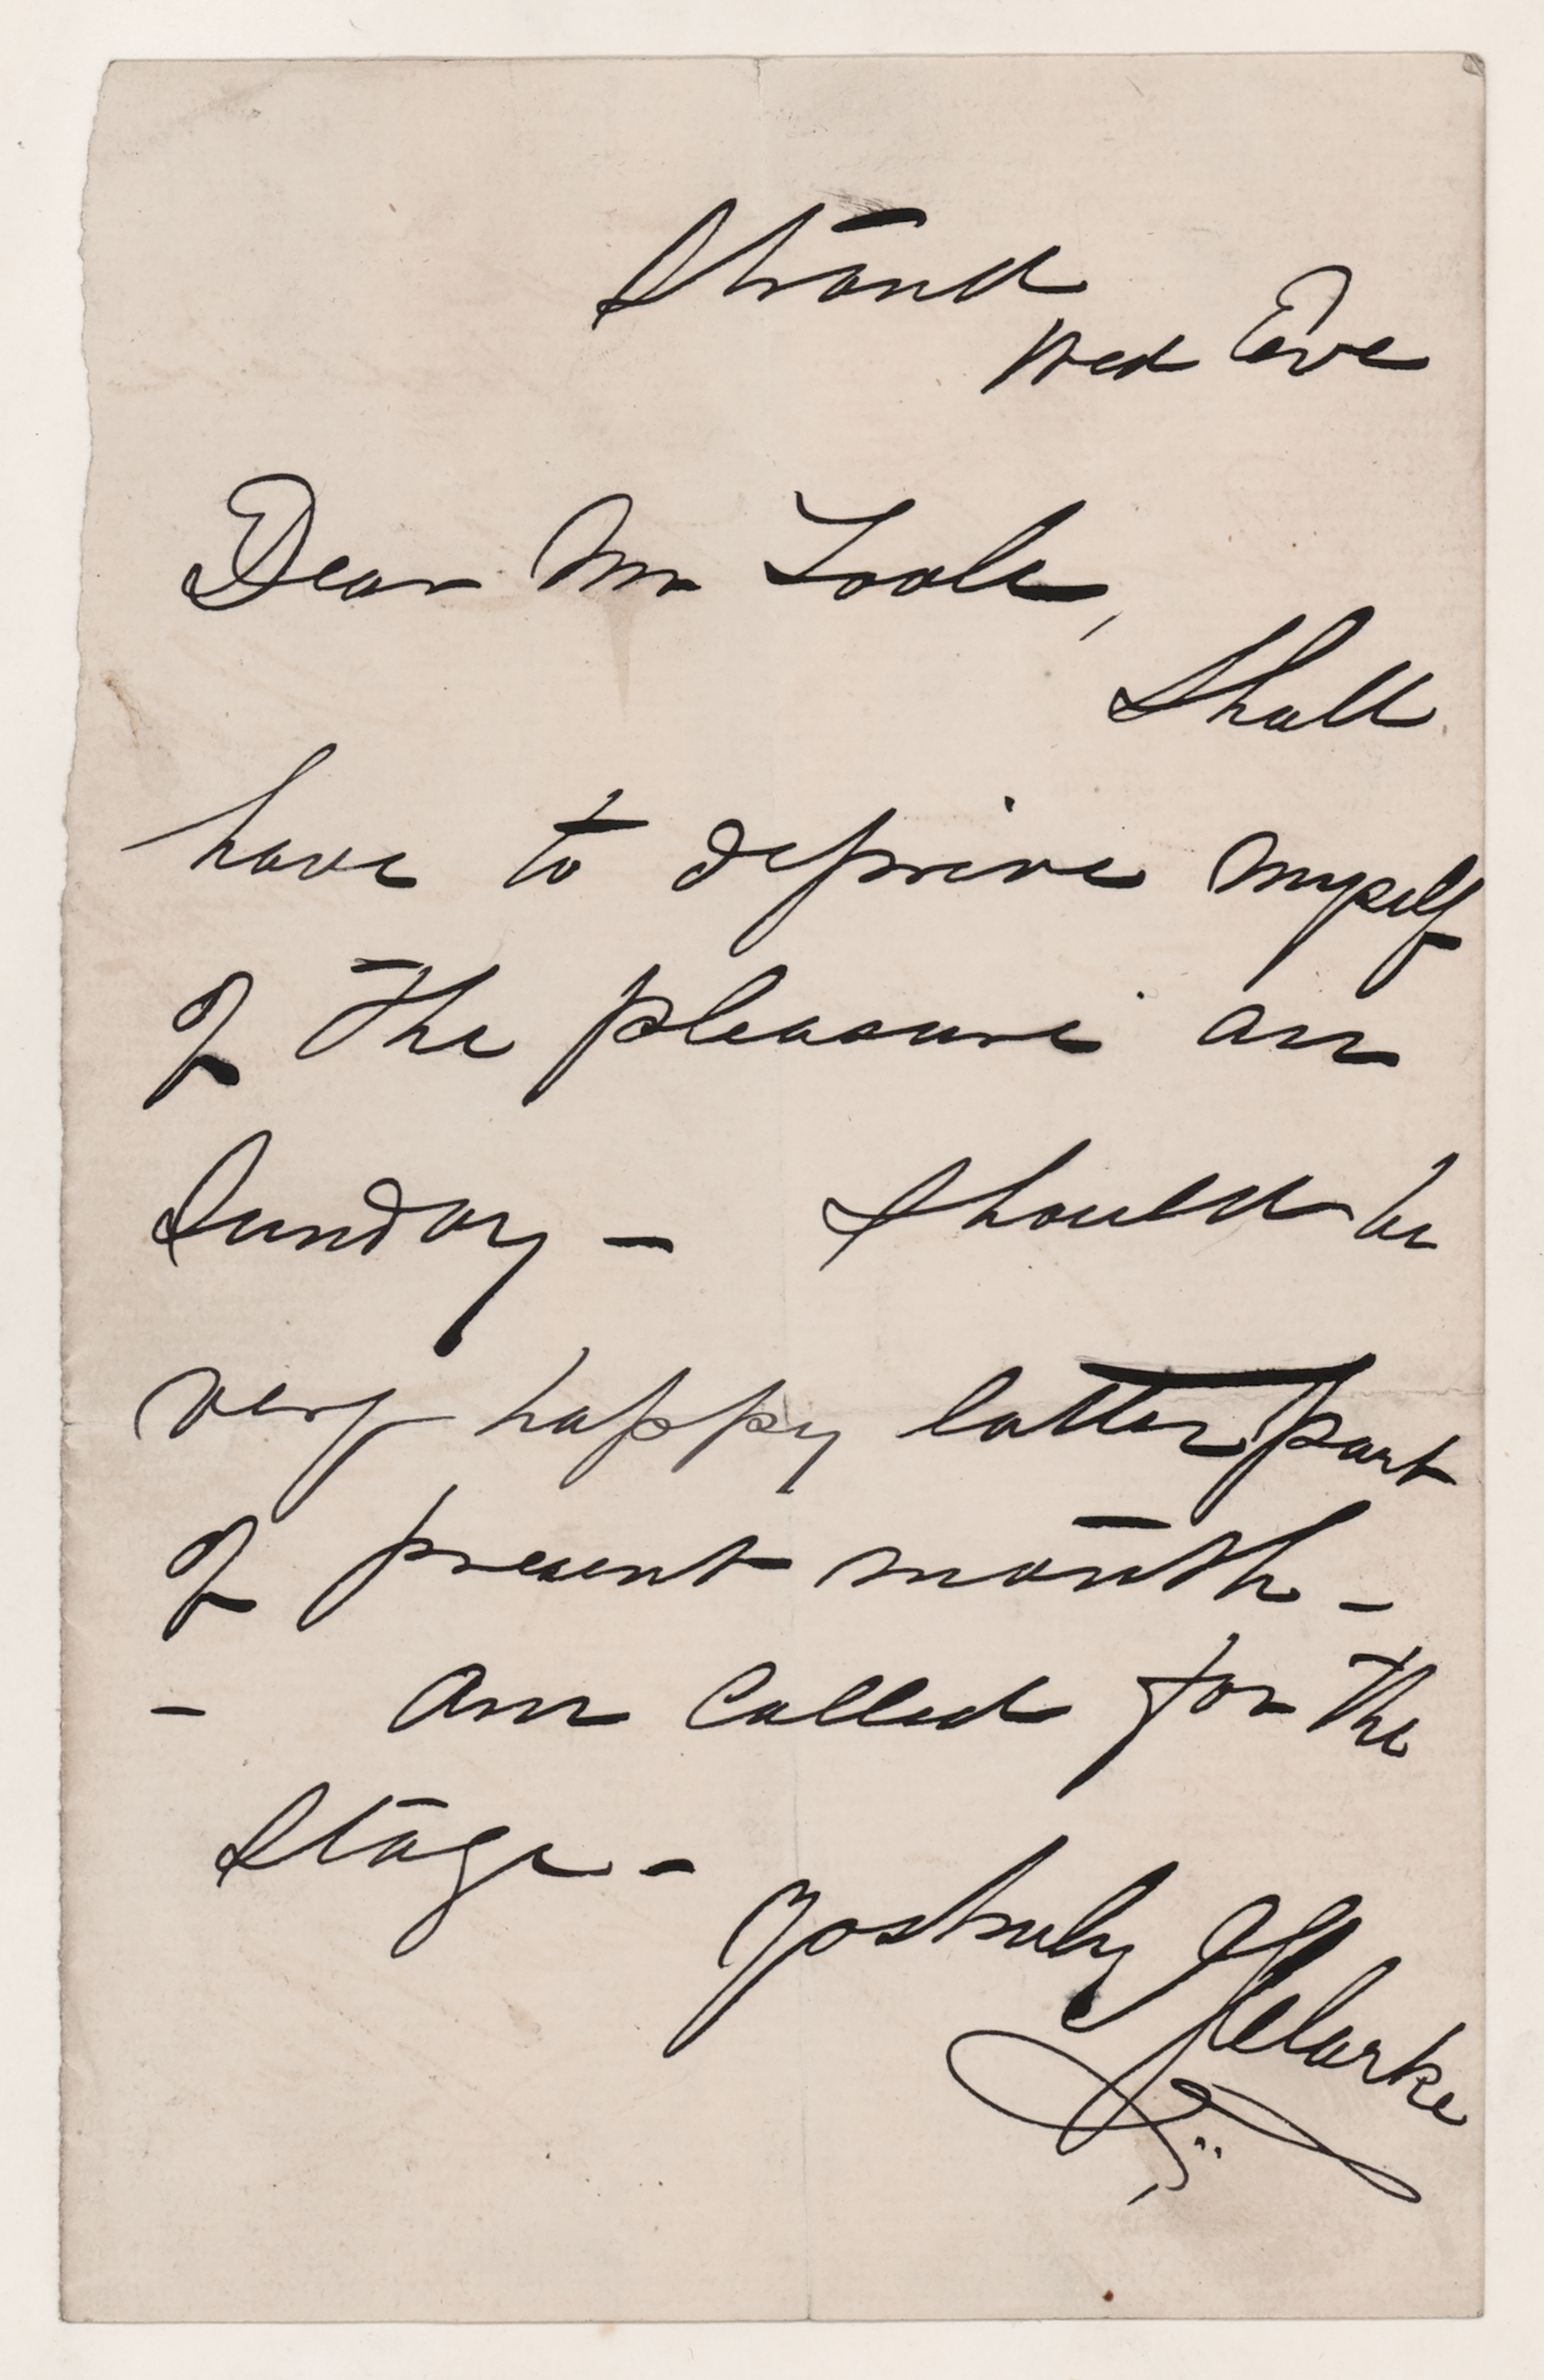 Strand
Wed Eve
Dear Mr Toole,
Shall
have to deprive myself
of the pleasure on
Sunday – Should be
very happy latter part
of present month –
– am called for the
Stage –
Yos truly JSClarke